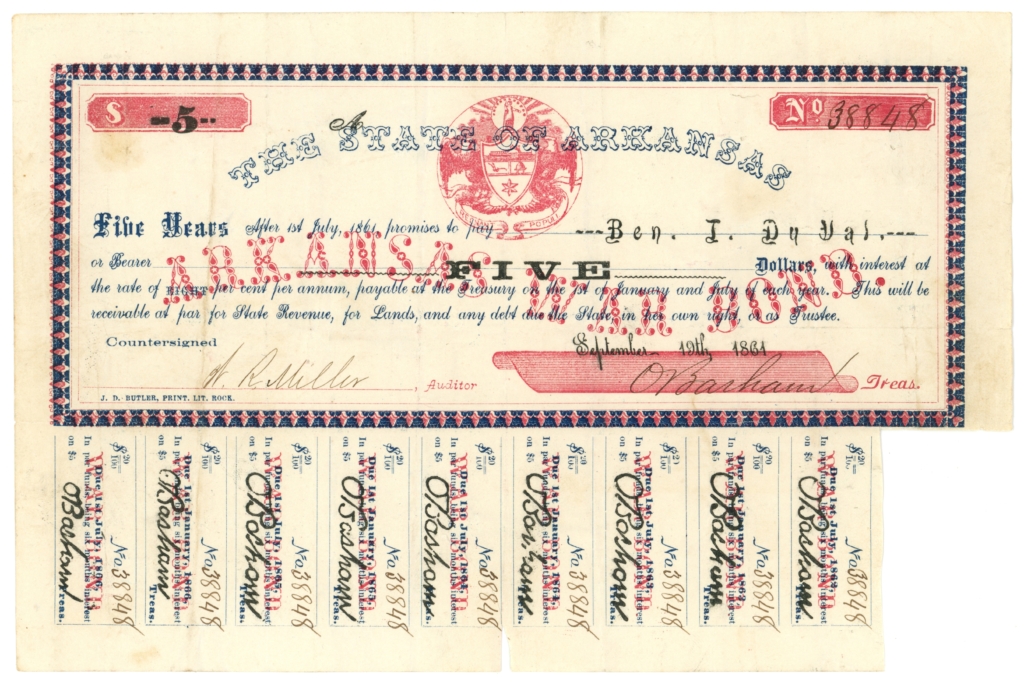 $ --5--
No 38848
A
THE STATE OF ARKANSAS
REGNANT POPULI
Five Years After 1st July, 1861, promises to pay ---Ben. T. Du Val.---
or Bearer FIVE Dollars, with interest at
the rate of EIGHT per cent per annum, payable at the Treasury on the 1st of January and July of each year. This will be
receivable at par for State Revenue, for Lands, and any debt due the State, in her own right, or as Trustee.
ARKANSAS WAR BOND.
September 19th, 1861
Countersigned
W. R. Miller, Auditor
O Basham Treas.
J. D. BUTLER, PRINT. LIT. ROCK.
$ 20/100 No. 38848
Due 1st July, 1866,
In par funds, being six months interest
on $5
O Basham Treas.
$ 20/100 No. 38848
Due 1st January, 1866,
In par funds, being six months interest
on $5
O Basham Treas.
$ 20/100 No. 38848
Due 1st July, 1865,
In par funds, being six months interest
on $5
O Basham Treas.
$ 20/100 No. 38848
Due 1st January, 1865,
In par funds, being six months interest
on $5
O Basham Treas.
$ 20/100 No. 38848
Due 1st July, 1864,
In par funds, being six months interest
on $5
O Basham Treas.
$ 20/100 No. 38848
Due 1st January, 1864,
In par funds, being six months interest
on $5
O Basham Treas.
$ 20/100 No. 38848
Due 1st July, 1863,
In par funds, being six months interest
on $5
O Basham Treas.
$ 20/100 No. 38848
Due 1st January,
In par funds, being six months interest
on $5
O Basham Treas.
$ 20/100 No. 38848
Due 1st July, 1862,
In par funds, being six months interest
on $5
O Basham Treas.